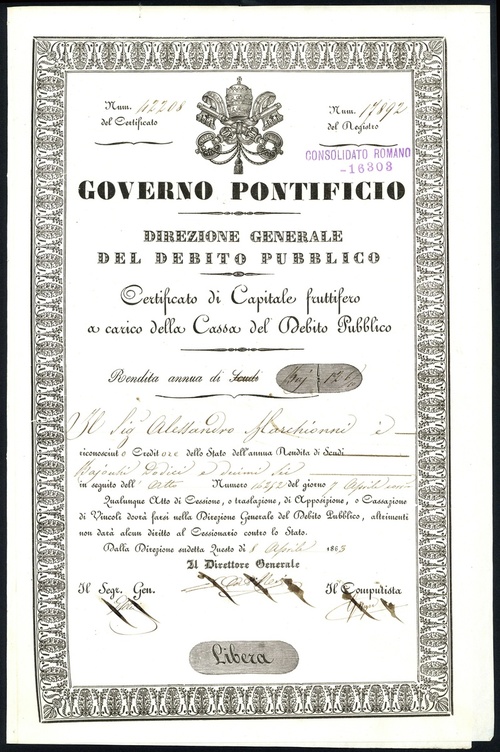 Num. 62208
del Certificato
Num. 17892
del Registro
CONSOLIDATO ROMANO
-16303
GOVERNO PONTIFICIO
DIREZIONE GENERALE
DEL DEBITO PUBBLICO
Certificato di Capitale fruttifero
a carico della Cassa del Debito Pubblico
Rendita annua di Scudi
Il Sig Alessandro Marchionni è
riconosciuto Creditore dello Stato dell'annua Rendita di Scudi
Bajocchi dodici e decimi sei
in seguito dell' Atto Numero del giorno 7 Aprile
Qualunque Atto di Cessione, o traslazione, di Apposizione, o Cassazione
di Vincoli dovrà farsi nella Direzione Generale del Debito Pubblico, altrimenti
non darà alcun diritto al Cessionario contro lo Stato.
Dalla Direzione sudetta Questo dì 8 Aprile 1863
Il Direttore Generale
Il Segr. Gen.
Il Computista
Libera